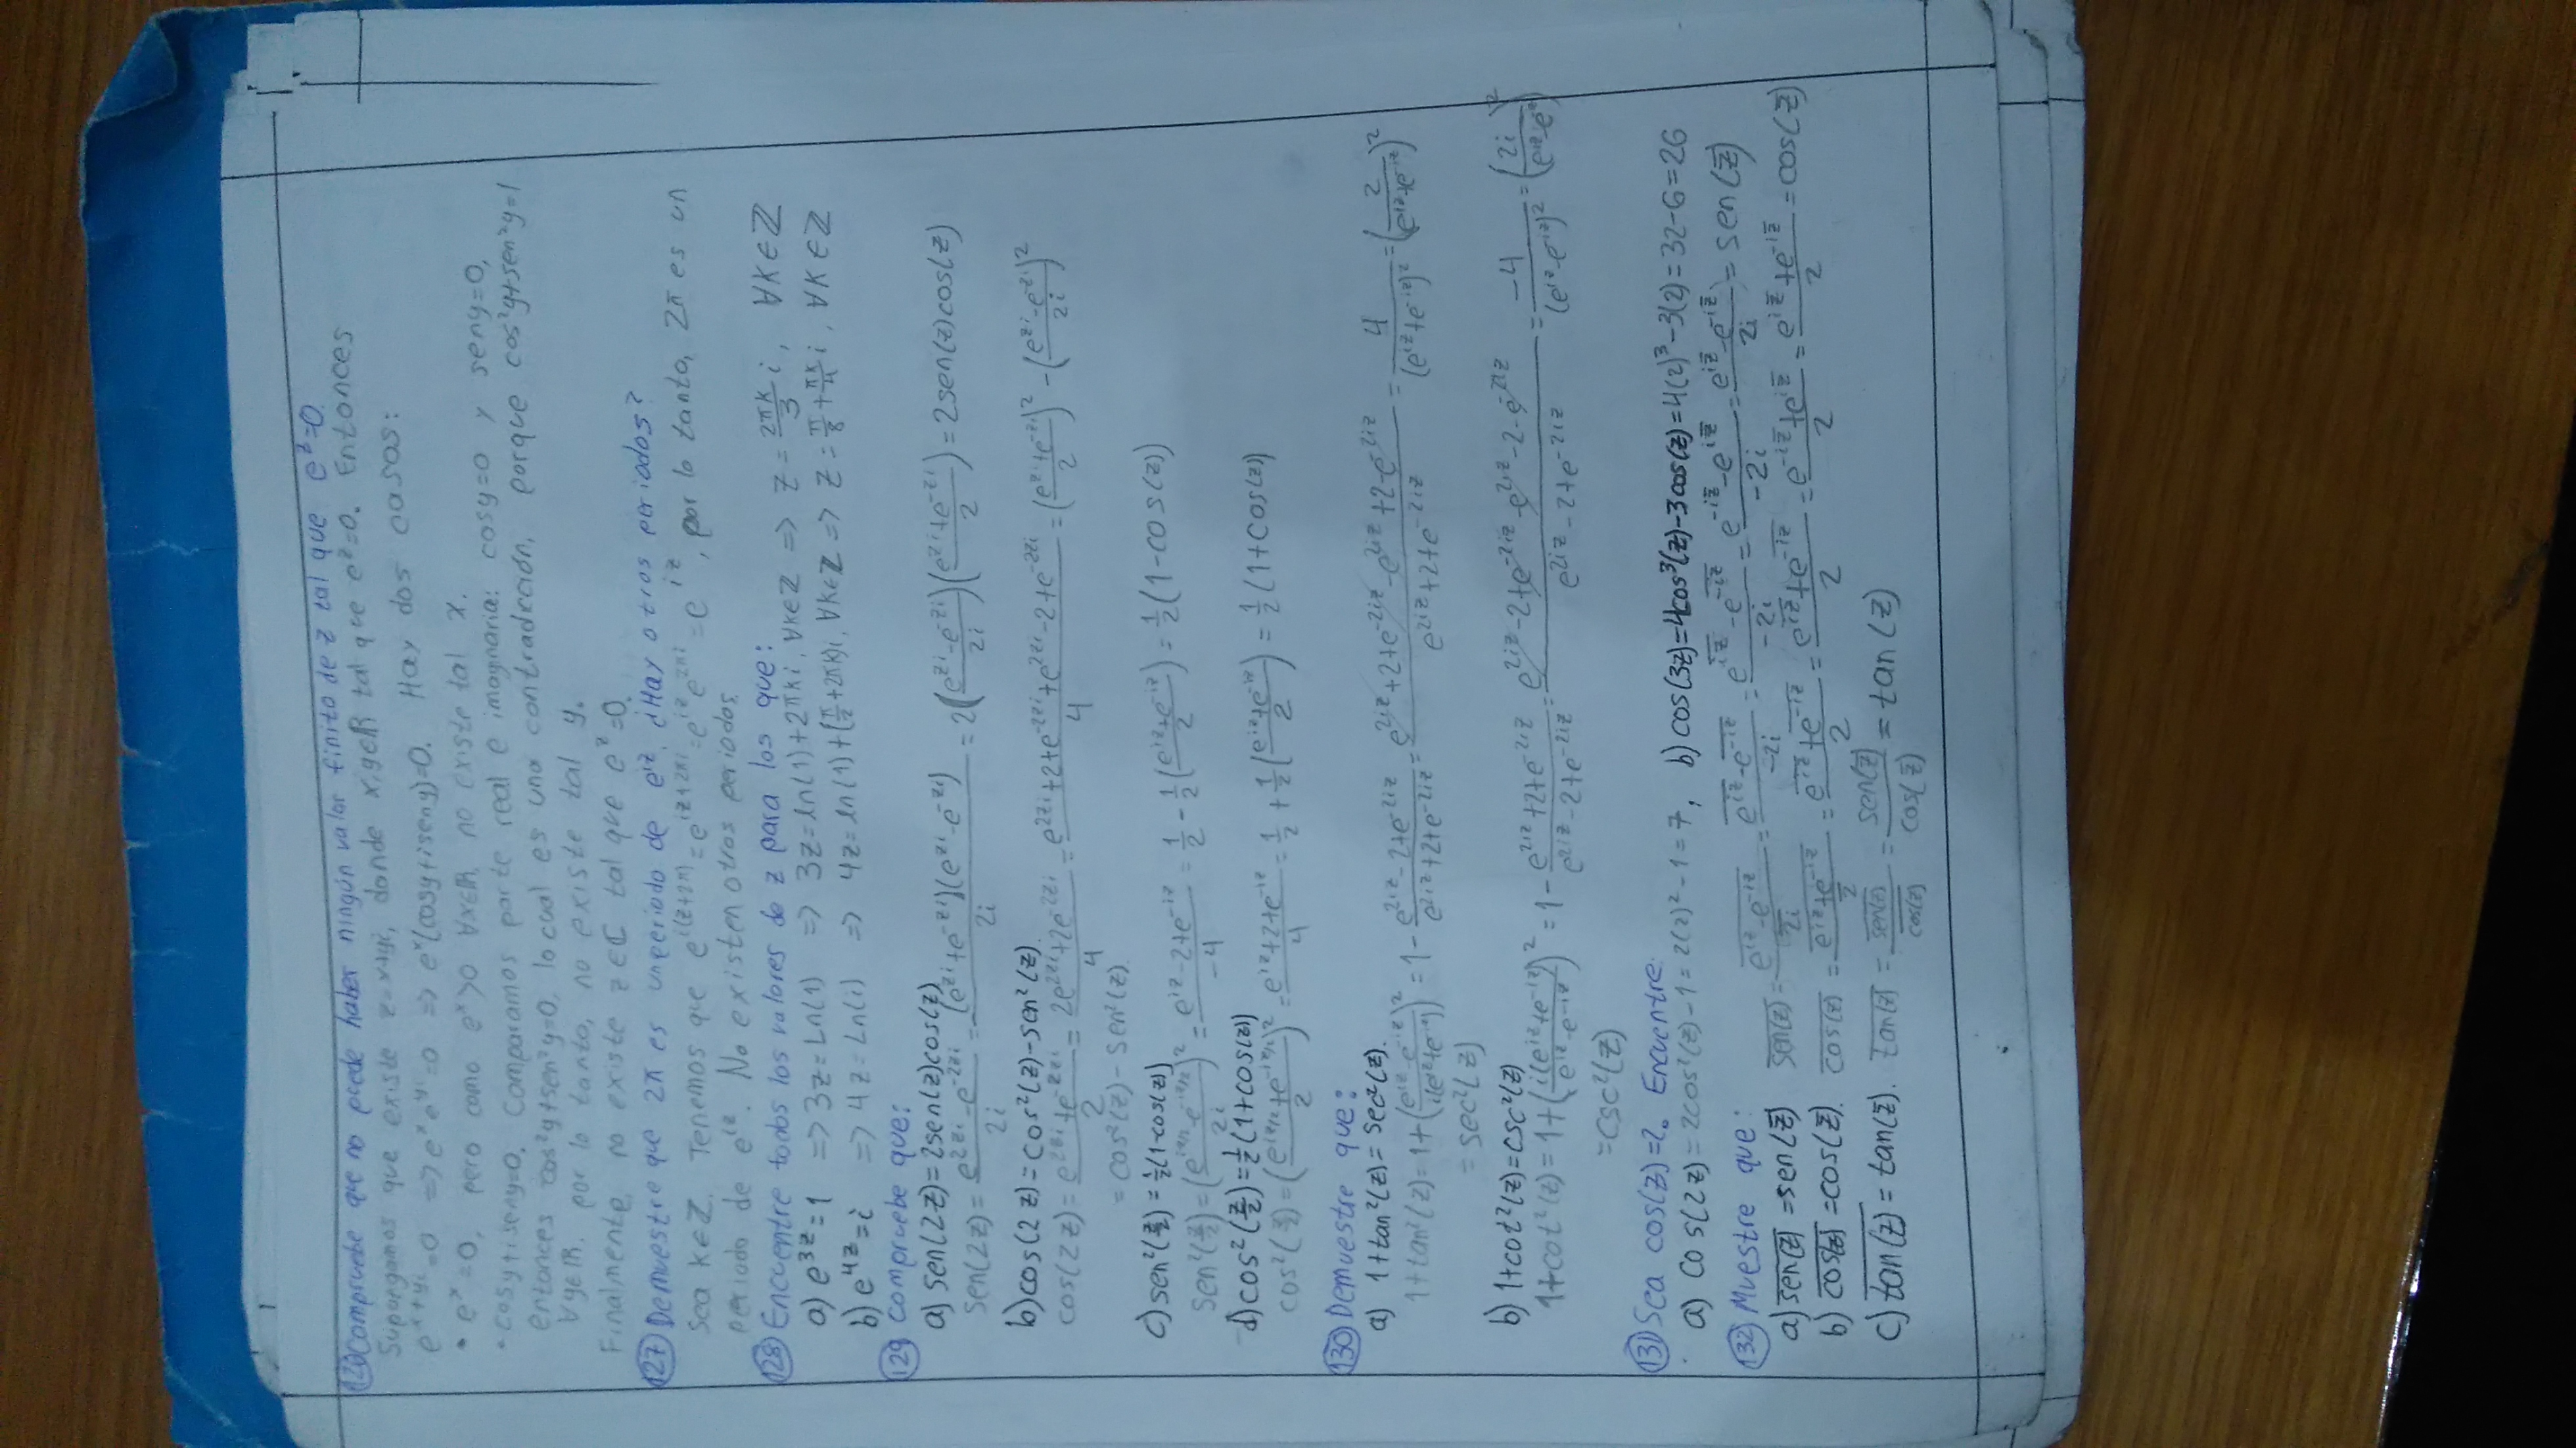 126 Compruebe que no puede haber ningún valor finito de z tal que e^z=0.
Supongamos que existe z=x+yi, donde x,y∈ℝ tal que e^z=0. Entonces
e^{x+yi}=0 => e^x e^{yi}=0 => e^x(cosy+iseny)=0. Hay dos casos:
• e^x=0, pero como e^x>0 ∀x∈ℝ, no existe tal x.
• cosy+iseny=0. Comparamos parte real e imaginaria: cosy=0 y seny=0,
entonces cos²y+sen²y=0, lo cual es una contradicción, porque cos²y+sen²y=1
∀y∈ℝ, por lo tanto, no existe tal y.
Finalmente, no existe z∈ℂ tal que e^z=0.
127 Demuestre que 2π es un periodo de e^{iz}. ¿Hay otros periodos?
Sea k∈ℤ. Tenemos que e^{i(z+2π)}=e^{iz+2πi}=e^{iz}e^{2πi}=e^{iz}, por lo tanto, 2π es un
periodo de e^{iz}. No existen otros periodos.
128 Encuentre todos los valores de z para los que:
a) e^{3z}=1 => 3z=Ln(1) => 3z=ln(1)+2πki, ∀k∈ℤ => z=\frac{2πk}{3}i, ∀k∈ℤ
b) e^{4z}=i => 4z=Ln(i) => 4z=ln(1)+(\frac{π}{2}+2πk)i, ∀k∈ℤ => z=\frac{π}{8}+\frac{πk}{4}i, ∀k∈ℤ
129 Compruebe que:
a) sen(2z)=2sen(z)cos(z)
sen(2z)=\frac{e^{2zi}-e^{-2zi}}{2i}=\frac{(e^{zi}+e^{-zi})(e^{zi}-e^{-zi})}{2i}=2(\frac{e^{zi}-e^{-zi}}{2i})(\frac{e^{zi}+e^{-zi}}{2})=2sen(z)cos(z)
b) cos(2z)=cos²(z)-sen²(z).
cos(2z)=\frac{e^{2zi}+e^{-2zi}}{2}=\frac{2e^{2zi}+2e^{-2zi}}{4}=\frac{e^{2zi}+2+e^{-2zi}+e^{2zi}-2+e^{-2zi}}{4}=(\frac{e^{zi}+e^{-zi}}{2})²-(\frac{e^{zi}-e^{-zi}}{2i})²
=cos²(z)-sen²(z).
c) sen²(\frac{z}{2})=\frac{1}{2}(1-cos(z))
sen²(\frac{z}{2})=(\frac{e^{iz/2}-e^{-iz/2}}{2i})²=\frac{e^{iz}-2+e^{-iz}}{-4}=\frac{1}{2}-\frac{1}{2}(\frac{e^{iz}+e^{-iz}}{2})=\frac{1}{2}(1-cos(z))
d) cos²(\frac{z}{2})=\frac{1}{2}(1+cos(z))
cos²(\frac{z}{2})=(\frac{e^{iz/2}+e^{-iz/2}}{2})²=\frac{e^{iz}+2+e^{-iz}}{4}=\frac{1}{2}+\frac{1}{2}(\frac{e^{iz}+e^{-iz}}{2})=\frac{1}{2}(1+cos(z))
130 Demuestre que:
a) 1+tan²(z)=sec²(z).
1+tan²(z)=1+(\frac{e^{iz}-e^{-iz}}{i(e^{iz}+e^{-iz})})²=1-\frac{e^{2iz}-2+e^{-2iz}}{e^{2iz}+2+e^{-2iz}}=\frac{e^{2iz}+2+e^{-2iz}-e^{2iz}+2-e^{-2iz}}{e^{2iz}+2+e^{-2iz}}=\frac{4}{(e^{iz}+e^{-iz})²}=(\frac{2}{e^{iz}+e^{-iz}})²
=sec²(z)
b) 1+cot²(z)=csc²(z)
1+cot²(z)=1+(\frac{i(e^{iz}+e^{-iz})}{e^{iz}-e^{-iz}})²=1-\frac{e^{2iz}+2+e^{-2iz}}{e^{2iz}-2+e^{-2iz}}=\frac{e^{2iz}-2+e^{-2iz}-e^{2iz}-2-e^{-2iz}}{e^{2iz}-2+e^{-2iz}}=\frac{-4}{(e^{iz}-e^{-iz})²}=(\frac{2i}{e^{iz}-e^{-iz}})²
=csc²(z)
131 Sea cos(z)=2. Encuentre:
a) cos(2z)=2cos²(z)-1=2(2)²-1=7, b) cos(3z)=4cos³(z)-3cos(z)=4(2)³-3(2)=32-6=26
132 Muestre que:
a) \overline{sen(z)}=sen(\bar{z}) \overline{sen(z)}=\frac{\overline{e^{iz}-e^{-iz}}}{\overline{2i}}=\frac{\overline{e^{iz}}-\overline{e^{-iz}}}{-2i}=\frac{e^{\overline{iz}}-e^{\overline{-iz}}}{-2i}=\frac{e^{-i\bar{z}}-e^{i\bar{z}}}{-2i}=\frac{e^{i\bar{z}}-e^{-i\bar{z}}}{2i}=sen(\bar{z})
b) \overline{cos(z)}=cos(\bar{z}). \overline{cos(z)}=\frac{\overline{e^{iz}+e^{-iz}}}{\overline{2}}=\frac{\overline{e^{iz}}+\overline{e^{-iz}}}{2}=\frac{e^{\overline{iz}}+e^{\overline{-iz}}}{2}=\frac{e^{-i\bar{z}}+e^{i\bar{z}}}{2}=\frac{e^{i\bar{z}}+e^{-i\bar{z}}}{2}=cos(\bar{z})
c) \overline{tan(z)}=tan(\bar{z}). \overline{tan(z)}=\frac{\overline{sen(z)}}{\overline{cos(z)}}=\frac{sen(\bar{z})}{cos(\bar{z})}=tan(\bar{z})